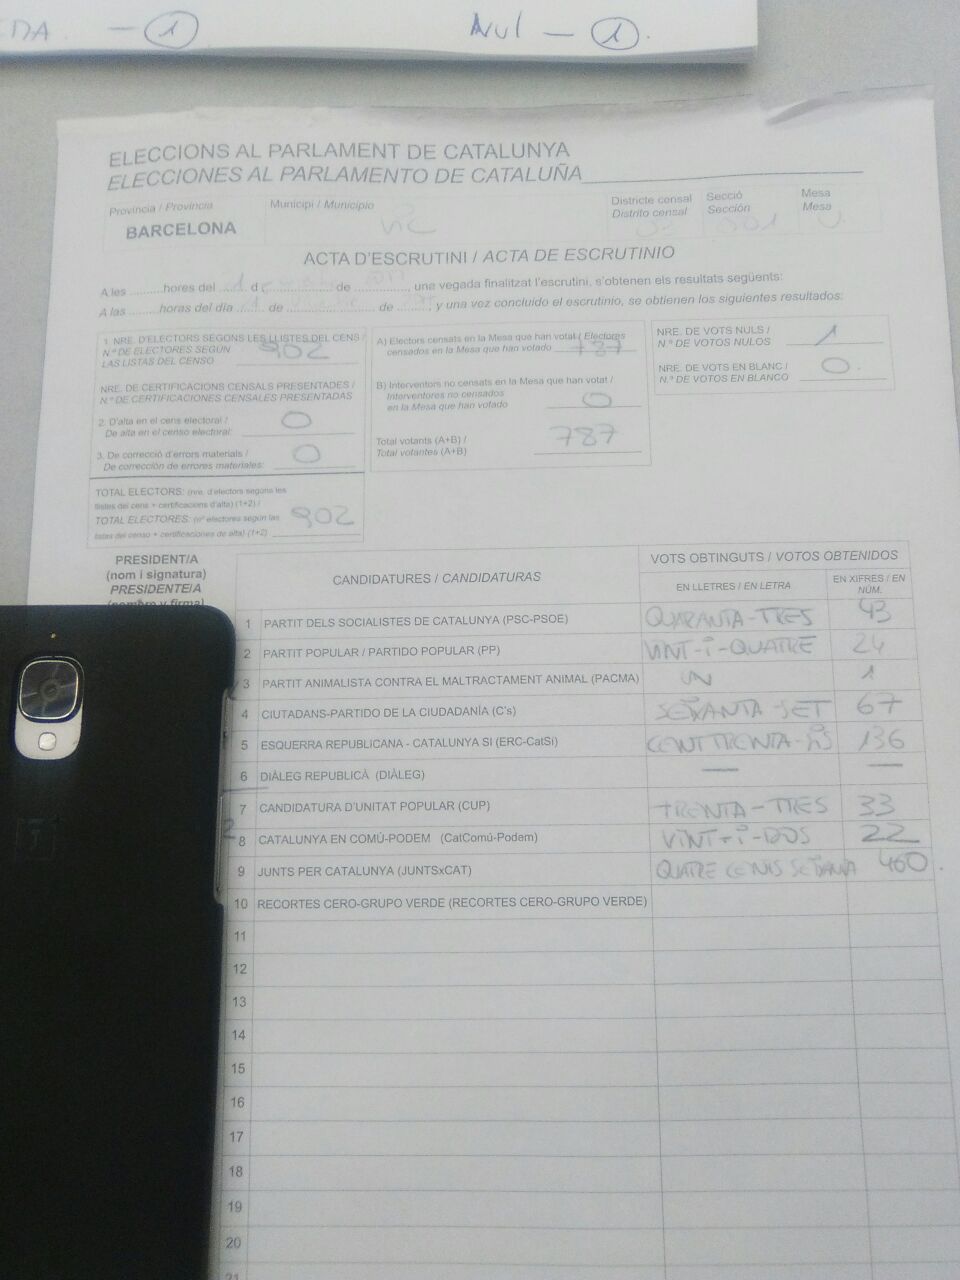 DA — 1 Nul — 1.
ELECCIONS AL PARLAMENT DE CATALUNYA
ELECCIONES AL PARLAMENTO DE CATALUÑA
Província / Provincia Municipi / Municipio Districte censal Secció Mesa
Distrito censal Sección Mesa
BARCELONA Vic 001 U
ACTA D'ESCRUTINI / ACTA DE ESCRUTINIO
A les hores del d de, una vegada finalitzat l'escrutini, s'obtenen els resultats següents:
A las horas del día de de, y una vez concluido el escrutinio, se obtienen los siguientes resultados:
1. NRE. D'ELECTORS SEGONS LES LLISTES DEL CENS /
N.º DE ELECTORES SEGÚN
LAS LISTAS DEL CENSO 902
NRE. DE CERTIFICACIONS CENSALS PRESENTADES /
N.º DE CERTIFICACIONES CENSALES PRESENTADAS
2. D'alta en el cens electoral /
De alta en el censo electoral: 0
3. De correcció d'errors materials /
De corrección de errores materiales: 0
TOTAL ELECTORS: (nre. d'electors segons les
llistes del cens + certificacions d'alta) (1+2) /
TOTAL ELECTORES: (nº electores según las
listas del censo + certificaciones de alta) (1+2) 902
A) Electors censats en la Mesa que han votat / Electores
censados en la Mesa que han votado 787
B) Interventors no censats en la Mesa que han votat /
Interventores no censados
en la Mesa que han votado 0
Total votants (A+B) /
Total votantes (A+B) 787
NRE. DE VOTS NULS /
N.º DE VOTOS NULOS 1
NRE. DE VOTS EN BLANC /
N.º DE VOTOS EN BLANCO 0.
PRESIDENT/A
(nom i signatura)
PRESIDENTE/A
(nombre y firma)
CANDIDATURES / CANDIDATURAS VOTS OBTINGUTS / VOTOS OBTENIDOS
EN LLETRES / EN LETRA EN XIFRES / EN NÚM.
1 PARTIT DELS SOCIALISTES DE CATALUNYA (PSC-PSOE) QUARANTA-TRES 43
2 PARTIT POPULAR / PARTIDO POPULAR (PP) VINT-i-QUATRE 24
3 PARTIT ANIMALISTA CONTRA EL MALTRACTAMENT ANIMAL (PACMA) UN 1
4 CIUTADANS-PARTIDO DE LA CIUDADANÍA (C's) SEIXANTA-SET 67
5 ESQUERRA REPUBLICANA - CATALUNYA SI (ERC-CatSi) CENT TRENTA-SIS 136
6 DIÀLEG REPUBLICÀ (DIÀLEG) — —
7 CANDIDATURA D'UNITAT POPULAR (CUP) TRENTA-TRES 33
8 CATALUNYA EN COMÚ-PODEM (CatComú-Podem) VINT-i-DOS 22
9 JUNTS PER CATALUNYA (JUNTSxCAT) QUATRE CENTS SEIXANTA 460.
10 RECORTES CERO-GRUPO VERDE (RECORTES CERO-GRUPO VERDE)
11
12
13
14
15
16
17
18
19
20
21